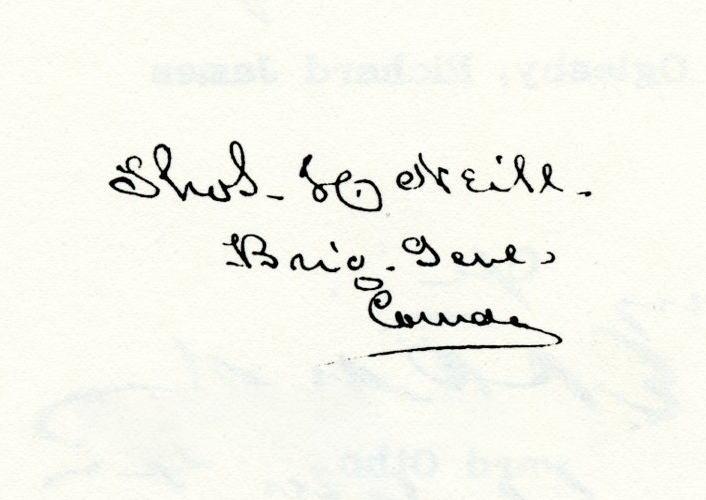 Thos. H. Neill.
Brig. Genl.
Comdg